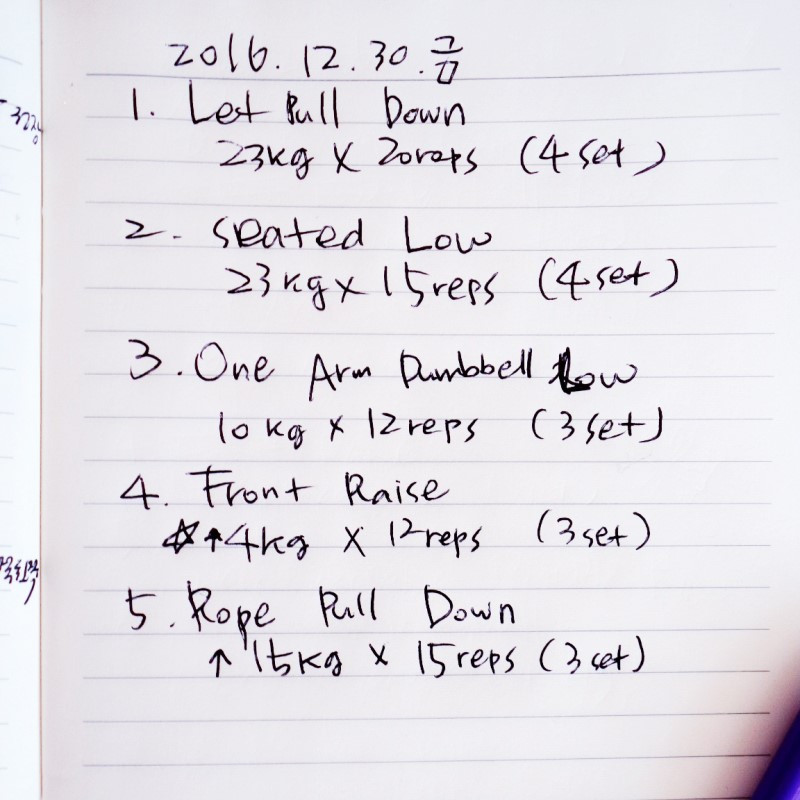 2016. 12. 30. 금
1. Let Pull Down
23kg X 20reps (4 set)
2. seated Low
23kg x 15reps (4 set)
3. One Arm Dumbbell Low
10kg x 12reps (3 set)
4. Front Raise
☆↑4kg X 12reps (3 set)
5. Rope Pull Down
↑ 15kg x 15reps (3 set)